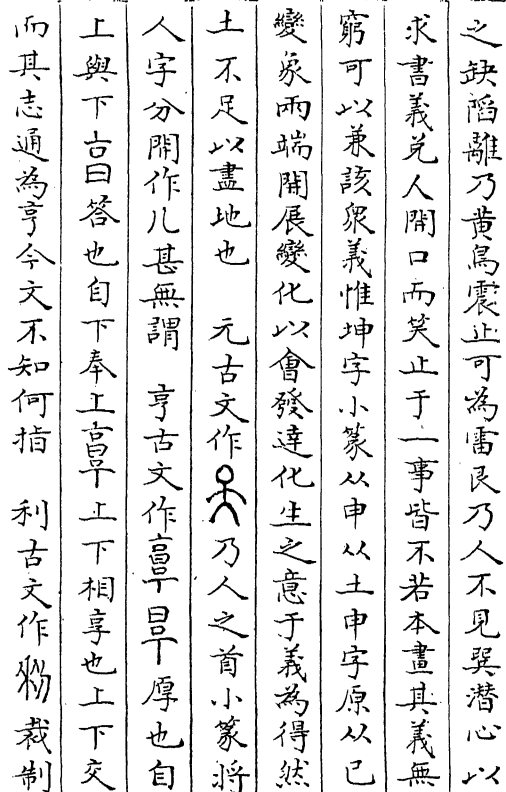 之缺陷離乃黄鳥震止可為雷艮乃人不見巽潜心以
求書義兑人開口而笑止于一事皆不若本畫其義無
窮可以兼該衆義惟坤字小篆从申从土申字原从已
變象兩端開展變化以會發達化生之意于義為得然
土不足以盡地也　元古文作乃人之首小篆将
人字分開作儿甚無謂　亨古文作厚也自
上與下亯答也自下奉上上下相享也上下交
而其志通為亨今文不知何指　利古文作裁制